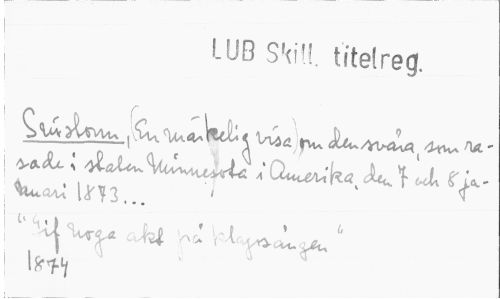 LUB Skill. titelreg.
Snöstorm, (En märkelig visa) om den svåra, som ra-
sade i staten Minnesota i Amerika, den 7 och 8 ja-
nuari 1873...
"Gif noga akt på klagosången"
1874